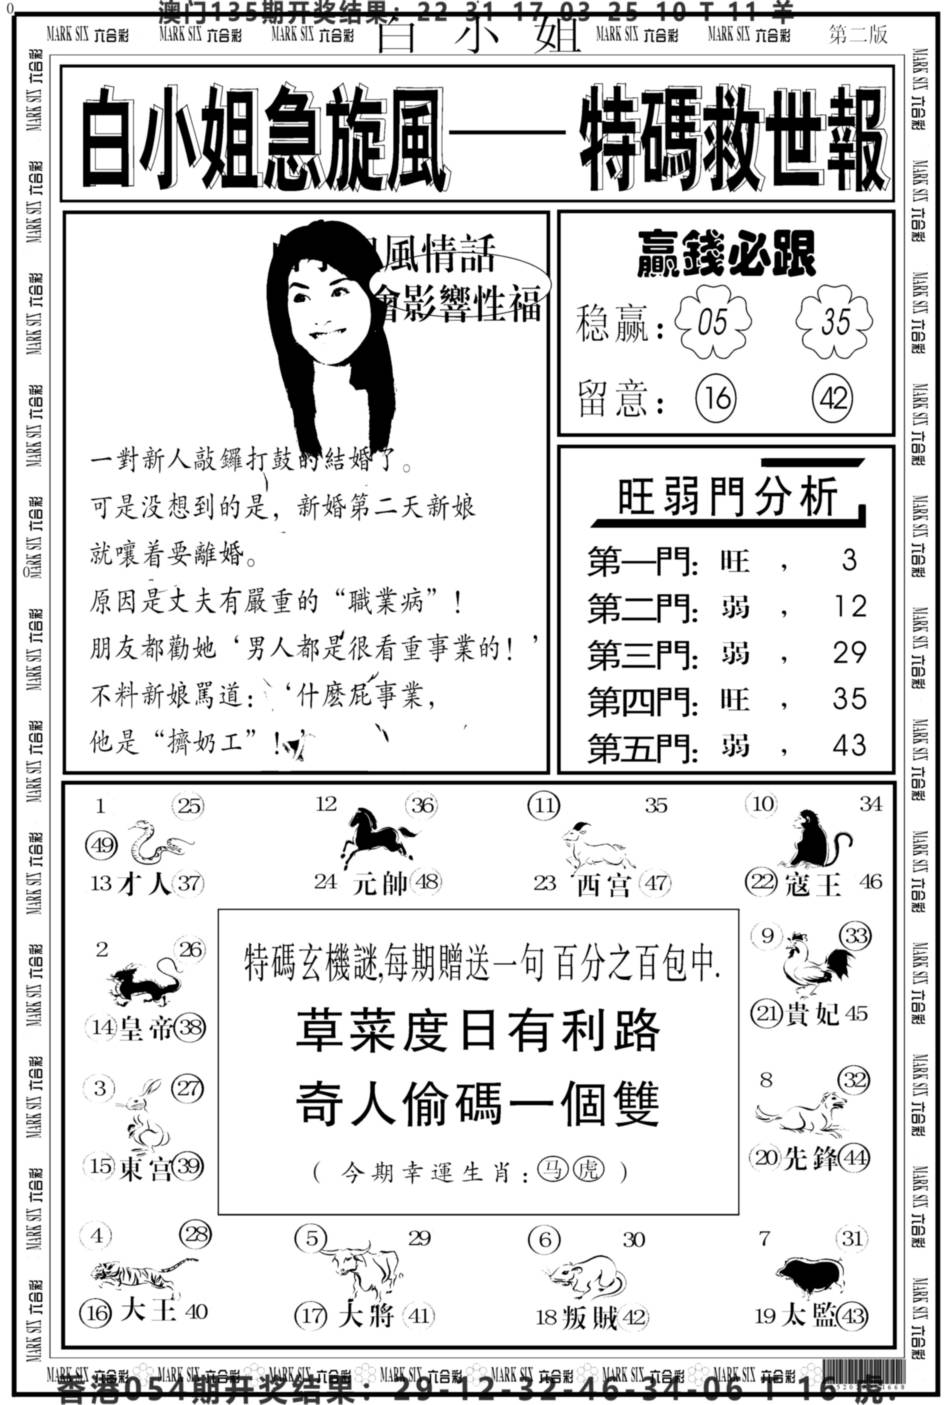 澳门135期开奖结果：22 31 17 03 25 10 T 11 羊
MARK SIX 六合彩 MARK SIX 六合彩 MARK SIX 六合彩 白小姐 MARK SIX 六合彩 MARK SIX 六合彩 第二版
白小姐急旋風——特碼救世報
風情話
會影響性福
一對新人敲鑼打鼓的結婚了。
可是没想到的是，新婚第二天新娘
就嚷着要離婚。
原因是丈夫有嚴重的“職業病”！
朋友都勸她‘男人都是很看重事業的！’
不料新娘罵道：‘什麽屁事業，
他是“擠奶工”！’
贏錢必跟
稳赢：05 35
留意：16 42
旺弱門分析
第一門：旺，3
第二門：弱，12
第三門：弱，29
第四門：旺，35
第五門：弱，43
1 25
49
13 才人 37
12 36
24 元帥 48
11 35
23 西宫 47
10 34
22 寇王 46
2 26
14 皇帝 38
9 33
21 貴妃 45
特碼玄機謎,每期贈送一句百分之百包中.
草菜度日有利路
奇人偷碼一個雙
（今期幸運生肖：马虎）
3 27
15 東宫 39
8 32
20 先鋒 44
4 28
16 大王 40
5 29
17 大將 41
6 30
18 叛賊 42
7 31
19 太監 43
MARK SIX 六合彩 MARK SIX 六合彩 MARK SIX 六合彩 MARK SIX 六合彩 MARK SIX 六合彩 MARK SIX 六合彩 MARK SIX 六合彩
香港054期开奖结果：29-12-32-46-34-06 T 16 虎.